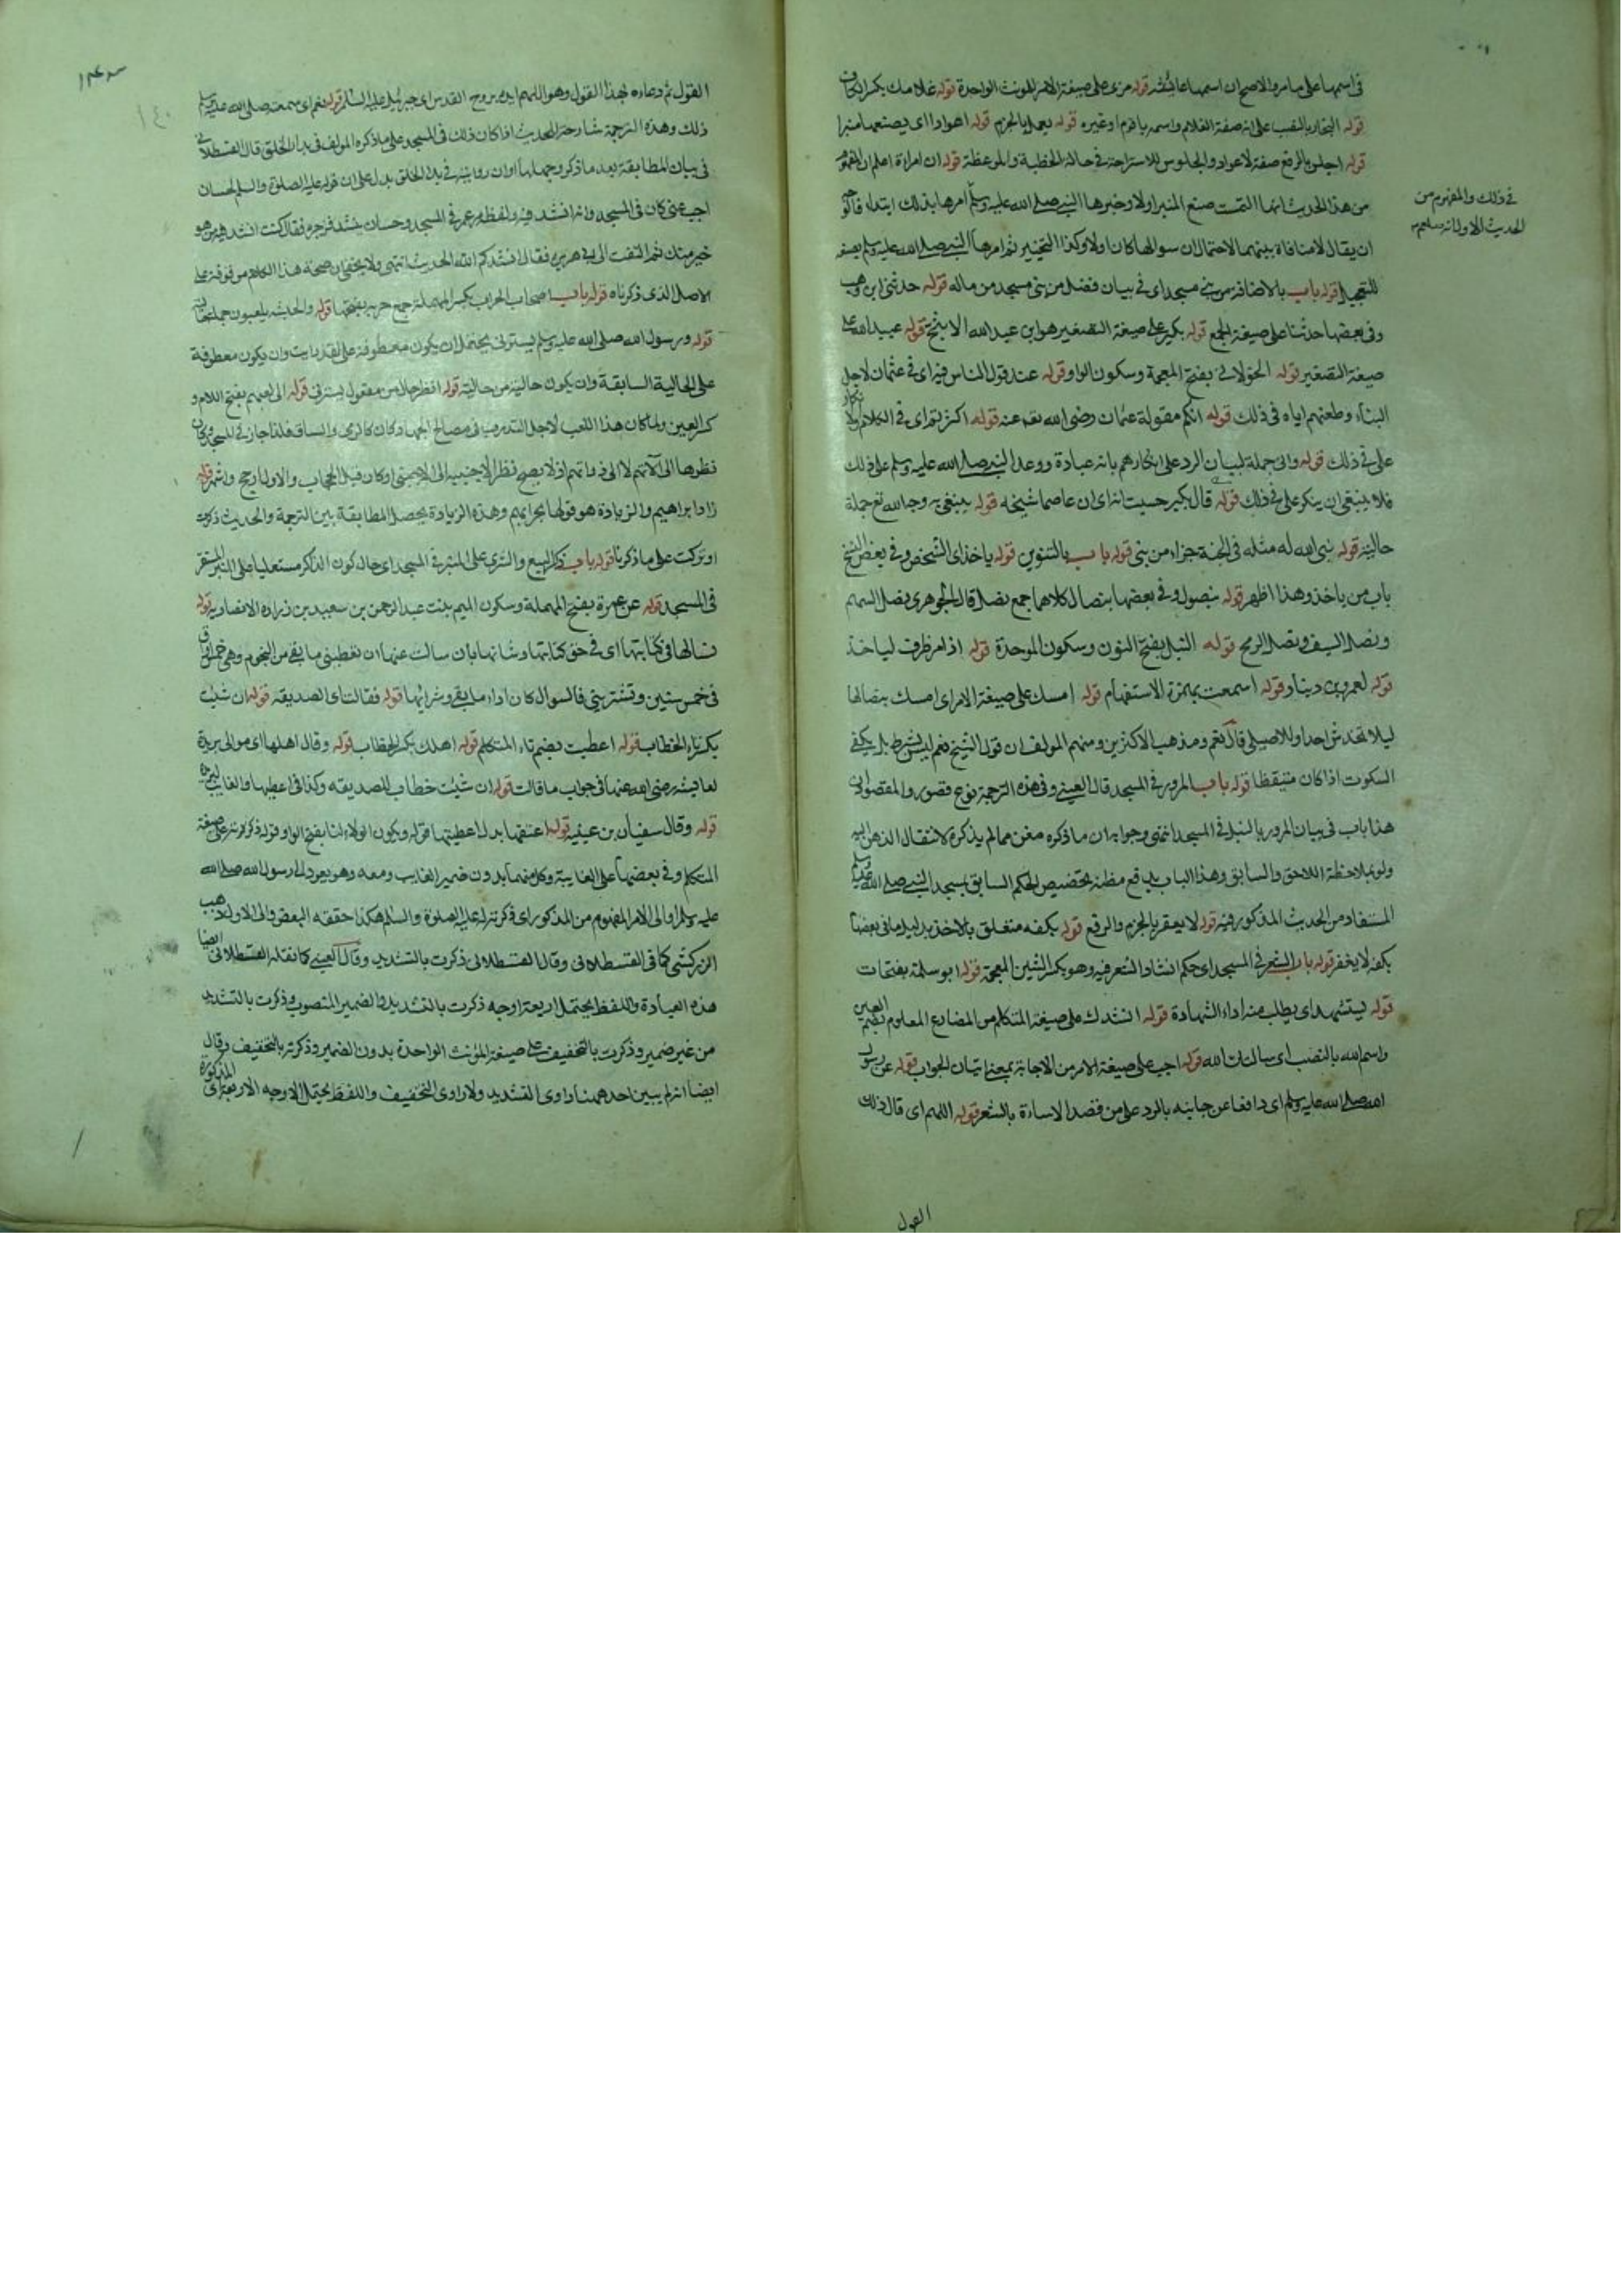 في اسمها على ما مر والاصح ان اسمها عائشة قوله مرى على صيغة الامر للمونث الواحدة قوله غلامك بكسر الكاف
قوله النجار بالنصب على انه صفة الغلام واسمه باقوم او غيره قوله يعمل بالجزم قوله اعوادا اى يصنعها منبرا
قوله اجلس بالرفع صفة لاعواد والجلوس للاستراحة في حالة الخطبة والموعظة قوله ان امراة اعلم ان المفهوم
من هذا الحديث انها التمست صنع المنبر اولا وخبرها النبي صلى الله عليه وسلم امرها بذلك ابتداء
في ذلك والمفهوم من
الحديث الاول انه
ان يقال لا منافاة بينهما لاحتمال ان سوالها كان اولا وكذا التخيير ثم امرها النبي صلى الله عليه وسلم بصنعه
للتعجيل قوله باب بالاضافة من بنى مسجدا اى في بيان فضل من بنى مسجد من ماله قوله حدثنى ابن وهب
وفي بعضها حدثنا على صيغة الجمع قوله بكير على صيغة التصغير هو ابن عبد الله الاشج قوله عبيد الله على
صيغة التصغير قوله الخولاني بفتح المعجمة وسكون الواو قوله عند قول الناس فيه اى في عثمان لاجل
البناء وطعنهم اياه في ذلك قوله انكم مقولة عثمان رضى الله تعالى عنه قوله اكثرتم اى في الكلام
على في ذلك قوله وانى جملة لبيان الرد على انكارهم بانه عبادة ووعد النبي صلى الله عليه وسلم على ذلك
فلا ينبغى ان ينكر على في ذلك قوله قال بكير حسبت انه اى ان عاصما شيخه قوله يبتغى به وجه الله تع جملة
حالية قوله بنى الله له مثله في الجنة جزاء من بنى قوله باب بالتنوين قوله ياخذ اى الشخص وفي بعض النسخ
باب من ياخذ وهذا اظهر قوله بنصول وفي بعضها بنصال كلاهما جمع نصل قال الجوهرى نصل السهم
ونصل السيف ونصل الرمح قوله النبل بفتح النون وسكون الموحدة قوله اذا مر ظرف لياخذ
قوله لعمرو بن دينار قوله اسمعت بهمزة الاستفهام قوله امسك على صيغة الامر اى امسك بنصالها
ليلا تخدش احدا وللاصيلى قال نعم ومذهب الاكثرين ومنهم المولف ان قول الشيخ نعم ليس بشرط بل يكفى
السكوت اذا كان متيقظا قوله باب المرور في المسجد قال العينى وفي هذه الترجمة نوع قصور والمقصود ان
هذا باب في بيان المرور بالنبل في المسجد انتهى وجوابه ان ما ذكره مغن مما لم يذكره لانتقال الذهن اليه
ولو بملاحظة اللاحق والسابق وهذا الباب يدفع مظنة تخصيص الحكم السابق بمسجد النبي صلى الله عليه وسلم
المستفاد من الحديث المذكور فيه قوله لا يعقر بالجزم والرفع قوله بكفه متعلق بالاخذ بدليل ما في بعضها
بكفه لا يعقر قوله باب الشعر في المسجد اى حكم انشاد الشعر فيه وهو بكسر الشين المعجمة قوله ابو سلمة بفتحات
قوله يستشهد اى يطلب منه اداء الشهادة قوله انشدك على صيغة المتكلم من المضارع المعلوم بضم العين
واسم الله بالنصب اى سالتك الله قوله اجب على صيغة الامر من الاجابة بمعنى اتيان الجواب قوله عن رسول
الله صلى الله عليه وسلم اى دافعا عن جانبه بالرد على من قصد الاساءة بالشعر قوله اللهم اى قال ذلك
القول
القول ثم دعا له بهذا القول وهو اللهم ايده بروح القدس اى جبرئيل عليه السلام قوله نعم اى سمعته صلى الله عليه وسلم
ذلك وهذه الترجمة شارحة للحديث اذا كان ذلك في المسجد على ما ذكره المولف في بدء الخلق قال القسطلاني
في بيان المطابقة بعد ما ذكر وجهها او ان روايته في بدء الخلق يدل على ان قوله عليه الصلوة والسلام لحسان
اجب عنى كان في المسجد وانه انشد فيه ولفظه مر عمر في المسجد وحسان ينشد فزجره فقال كنت انشد فيه من هو
خير منك ثم التفت الى ابى هريرة فقال انشدكم الله الحديث انتهى ولا يخفى ان صحة هذا الكلام موقوفة على
الاصل الذى ذكرناه قوله باب اصحاب الحراب بكسر المهملة جمع حربة بفتحها قوله والحبشة يلعبون جملة حالية
قوله ورسول الله صلى الله عليه وسلم يسترنى يحتمل ان يكون معطوفة على لقد رايت وان يكون معطوفة
على الحالية السابقة وان يكون حالية من حالية قوله انظر حال من مفعول يسترنى قوله الى لعبهم بفتح اللام و
كسر العين ولما كان هذا اللعب لاجل التدرب في مصالح الجهاد كان كالرمى والسباق فلذا جاز في المسجد وكان
نظرها الى آلاتهم لا الى ذواتهم اذ لا يصح نظر الاجنبية الى الاجنبى او كان قبل الحجاب والاول ارجح واشهر قوله
زاد ابراهيم والزيادة هو قولها بحرابهم وهذه الزيادة يحصل المطابقة بين الترجمة والحديث ذكرت
او تركت على ما ذكرنا قوله باب ذكر البيع والشرى على المنبر في المسجد اى حال كون الذاكر مستعليا على المنبر المستقر
في المسجد قوله عن عمرة بفتح المهملة وسكون الميم بنت عبد الرحمن بن سعيد بن زرارة الانصارية قوله
تسالها في كتابتها اى في حق كتابتها وشانها بان سالت عنها ان تعطينى ما بقى من النجوم وهى خمس اواق
في خمس سنين وتشترينى فالسوال كان اداء ما بقى وشرائها قوله فقالت اى الصديقة قوله ان شئت
بكسر تاء الخطاب قوله اعطيت بضم تاء المتكلم قوله اهلك بكسر الخطاب قوله وقال اهلها اى مولى بريرة
لعائشة رضى الله عنها في جواب ما قالت قوله ان شئت خطاب للصديقة وكذا في اعطيها والغايب لبريرة
قوله وقال سفيان بن عيينة قوله اعتقها بدل اعطيتها قوله ويكون الولاء لنا بفتح الواو قوله ذكرته على صيغة
المتكلم وفي بعضها على الغايبة وكل منهما بدون ضمير الغايب ومعه وهو يعود الى رسول الله صلى الله
عليه وسلم او الى الامر المفهوم من المذكور اى ذكرته له عليه الصلوة والسلم هكذا حققه البعض والى الاول ذهب
الزركشى كما في القسطلانى وقال القسطلانى ذكرت بالتشديد وقال العينى كما نقله القسطلانى ايضا
هذه العبادة واللفظ يحتمل اربعة اوجه ذكرت بالتشديد والضمير المنصوب وذكرت بالتشديد
من غير ضمير وذكرت بالتخفيف على صيغة المؤنث الواحدة بدون الضمير وذكرته بالتخفيف وقال
ايضا انه لم يبين احدهمنا راوى التشديد ولا راوى التخفيف واللفظ يحتمل الاوجه الاربعة المذكورة اى